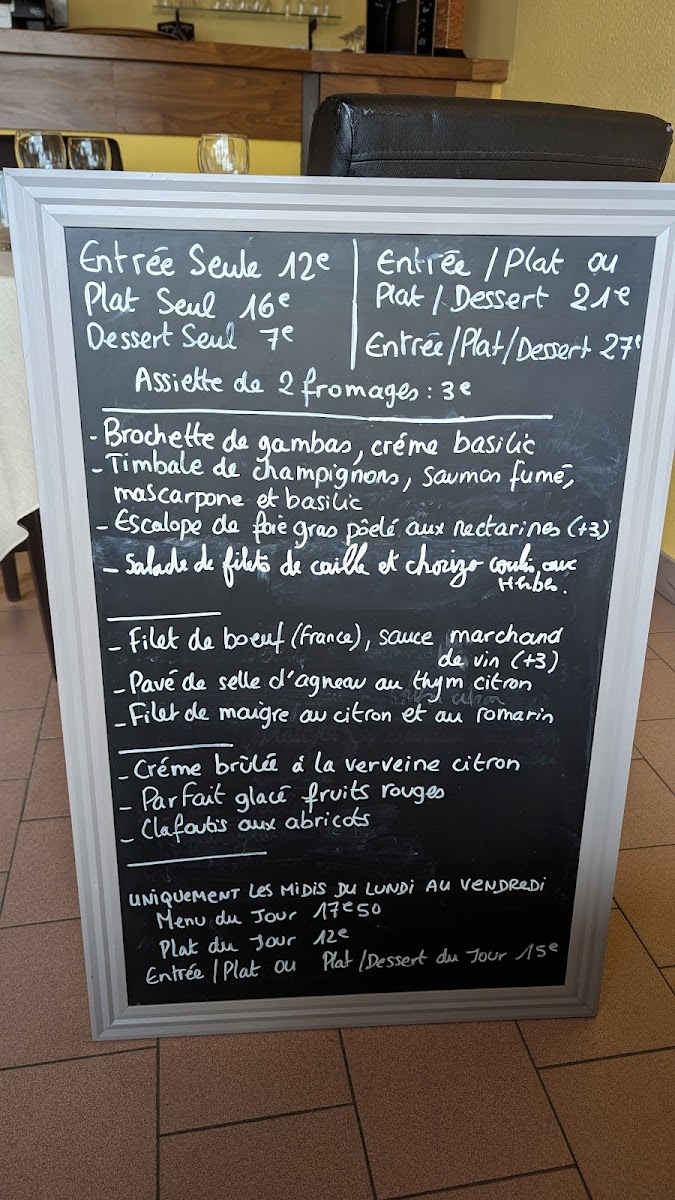 Entrée Seule 12e
Plat Seul 16e
Dessert Seul 7e
Entrée / Plat ou
Plat / Dessert 21e
Entrée/Plat/Dessert 27e
Assiette de 2 fromages : 3e
- Brochette de gambas, créme basilic
- Timbale de champignons, saumon fumé,
mascarpone et basilic
- Escalope de foie gras poêlé aux nectarines (+3)
- Salade de filets de caille et chorizo coulis aux
Herbes.
- Filet de boeuf (France), sauce marchand
de vin (+3)
- Pavé de selle d'agneau au thym citron
- Filet de maigre au citron et au romarin
- Créme brûlée à la verveine citron
- Parfait glacé fruits rouges
- Clafoutis aux abricots
UNIQUEMENT LES MIDIS DU LUNDI AU VENDREDI
Menu du Jour 17e50
Plat du Jour 12e
Entrée / Plat ou Plat /Dessert du Jour 15e